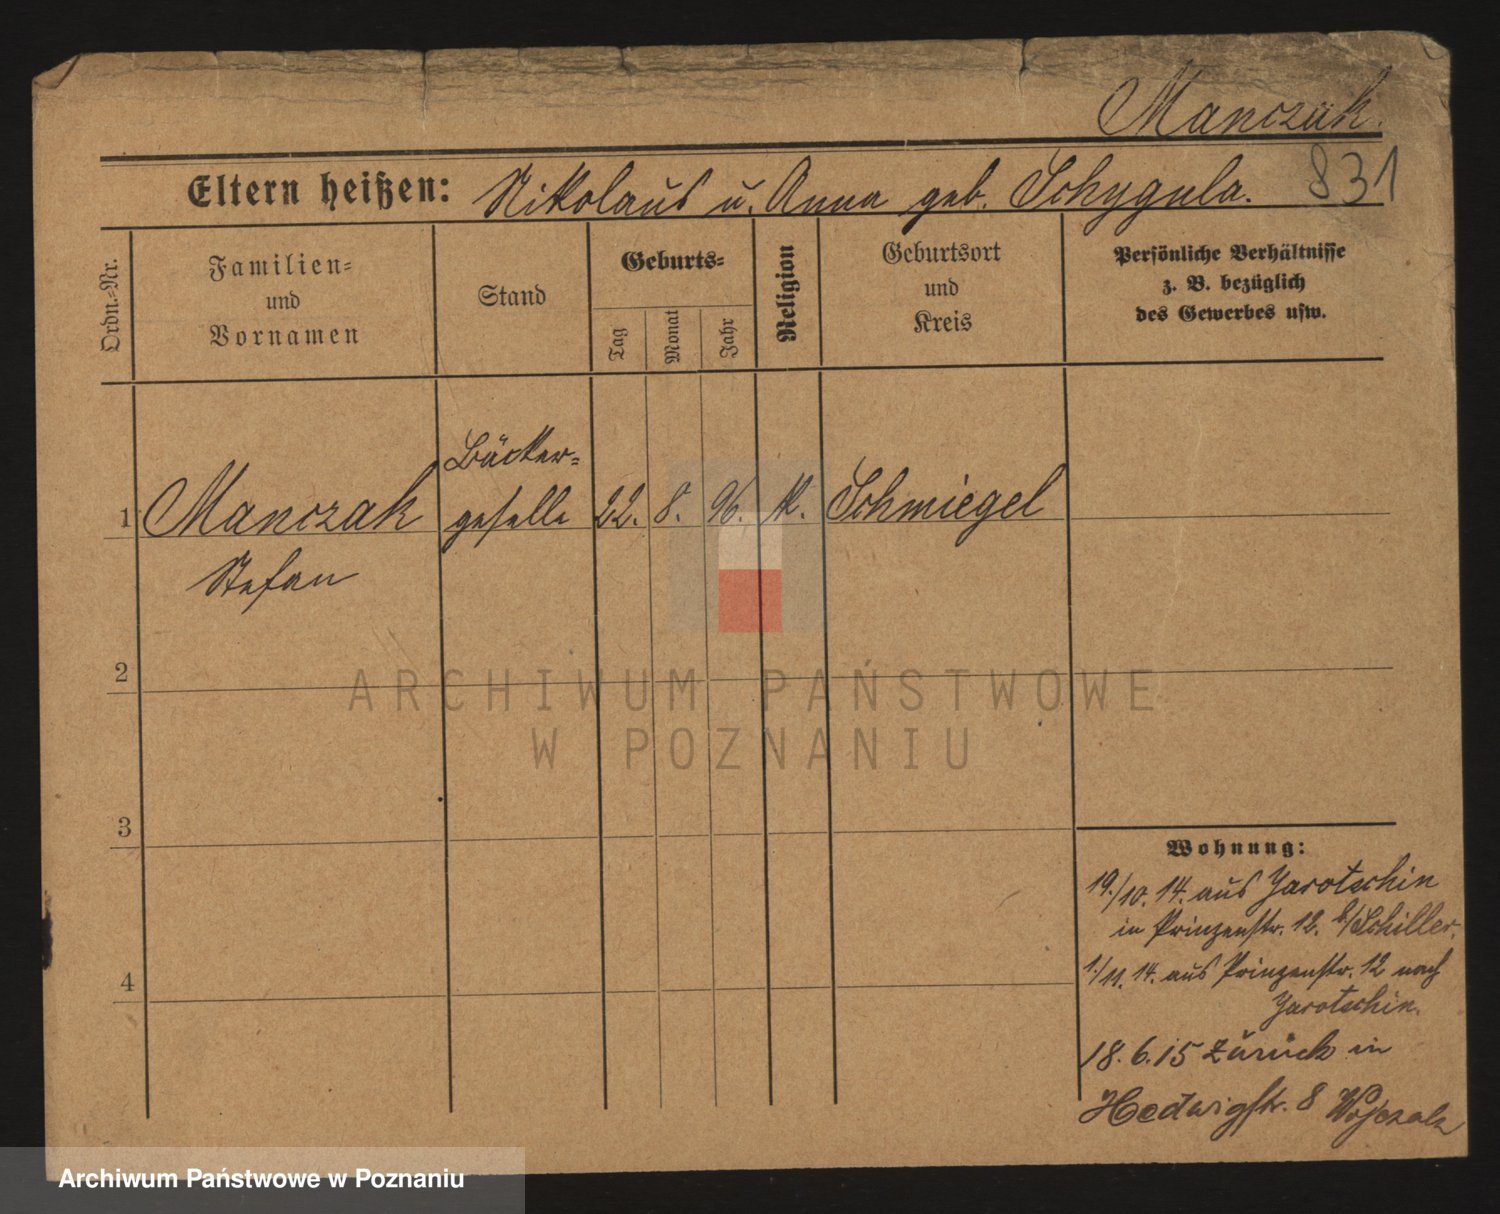 Manczak.
Eltern heißen: Nikolaus u. Anna geb. Schygula. 831
Ordn.-Nr.
Familien-
und
Vornamen
Stand
Geburts-
Tag
Monat
Jahr
Religion
Geburtsort
und
Kreis
Persönliche Verhältnisse
z. B. bezüglich
des Gewerbes usw.
Bäcker-
1 Manczak geselle 22. 8. 96. k. Schmiegel
Stefan
2
ARCHIWUM PAŃSTWOWE
W POZNANIU
3
Wohnung:
19./10. 14. aus Jarotschin
in Prinzenstr. 12. b/Schiller.
1./11. 14. aus Prinzenstr. 12 nach
Jarotschin.
4
18. 6. 15 zurück in
Hedwigstr. 8 Wojczak
Archiwum Państwowe w Poznaniu